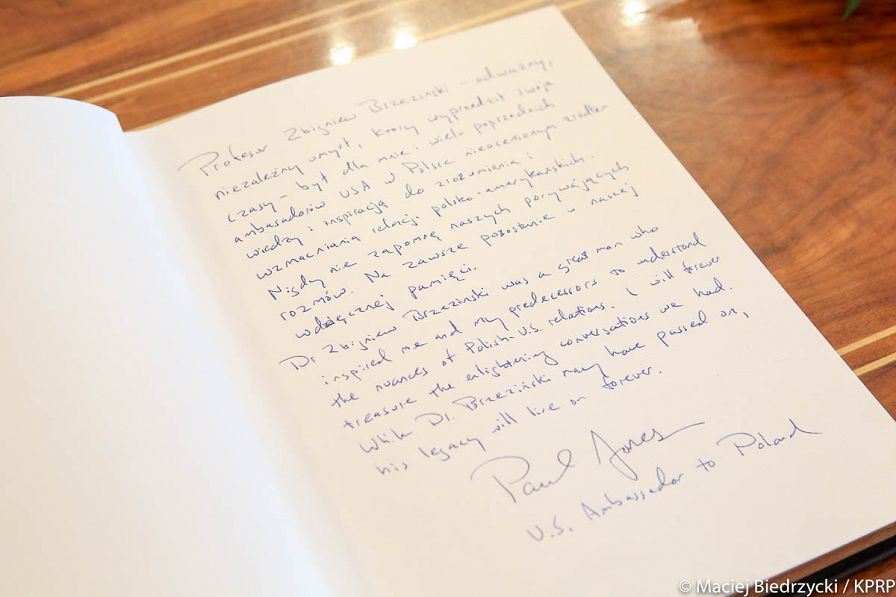 Profesor Zbigniew Brzeziński - odważny,
niezależny umysł, który wyprzedził swoje
czasy - był dla mnie i wielu poprzednich
ambasadorów USA w Polsce nieocenionym źródłem
wiedzy i inspiracją do zrozumienia i
wzmacniania relacji polsko-amerykańskich.
Nigdy nie zapomnę naszych porywających
rozmów. Na zawsze pozostanie w naszej
wdzięcznej pamięci.
Dr Zbigniew Brzezinski was a great man who
inspired me and my predecessors to understand
the nuances of Polish-U.S. relations. I will forever
treasure the enlightening conversations we had.
While Dr. Brzeziński may have passed on,
his legacy will live on forever.
Paul Jones
U.S. Ambassador to Poland
© Maciej Biedrzycki / KPRP